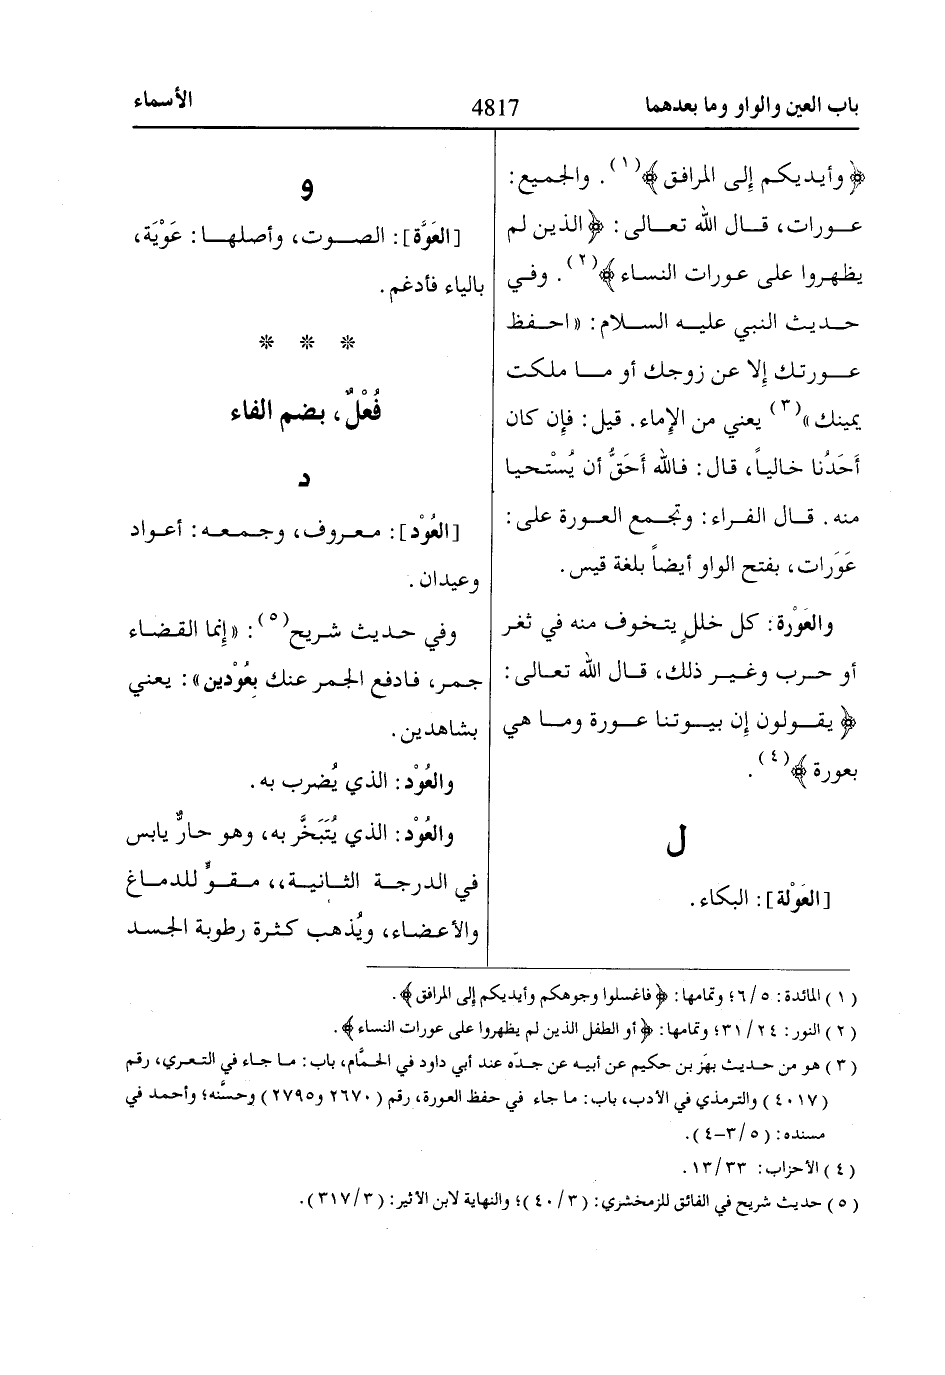 باب العين والواو وما بعدهما
4817
الأسماء
﴿ وأيديكم إلى المرافق ﴾(١). والجميع:
عورات، قال الله تعالى: ﴿ الذين لم
يظهروا على عورات النساء ﴾(٢). وفي
حديث النبي عليه السلام: «احفظ
عورتك إلا عن زوجك أو ما ملكت
يمينك»(٣) يعني من الإماء. قيل: فإن كان
أَحَدُنا خالياً، قال: فالله أَحَقُّ أن يُسْتحيا
منه. قال الفراء: وتجمع العورة على:
عَوَرات، بفتح الواو أيضاً بلغة قيس.
والعَوْرة: كل خللٍ يتخوف منه في ثغر
أو حرب وغير ذلك، قال الله تعالى:
﴿ يقولون إن بيوتنا عورة وما هي
بعورة ﴾(٤).
ل
[العَوْلة]: البكاء.
و
[العَوَّة]: الصوت، وأصلها: عَوْيَة،
بالياء فأدغم.
* * *
فُعْلٌ، بضم الفاء
د
[العُوْد]: معروف، وجمعه: أعواد
وعيدان.
وفي حديث شريح(٥): «إنما القضاء
جمر، فادفع الجمر عنك بعُوْدين»: يعني
بشاهدين.
والعُوْد: الذي يُضرب به.
والعُوْد: الذي يُتَبَخَّر به، وهو حارٌّ يابس
في الدرجة الثانية،، مقوٍّ للدماغ
والأعضاء، ويُذهب كثرة رطوبة الجسد
(١) المائدة: ٥/٦؛ وتمامها: ﴿ فاغسلوا وجوهكم وأيديكم إلى المرافق ﴾.
(٢) النور: ٢٤/٣١؛ وتمامها: ﴿ أو الطفل الذين لم يظهروا على عورات النساء ﴾.
(٣) هو من حديث بهَز بن حكيم عن أبيه عن جدّه عند أبي داود في الحمَّام، باب: ما جاء في التعري، رقم
(٤٠١٧) والترمذي في الأدب، باب: ما جاء في حفظ العورة، رقم (٢٦٧٠ و٢٧٩٥) وحسَّنه؛ وأحمد في
مسنده: (٥/٣-٤).
(٤) الأحزاب: ٣٣/١٣.
(٥) حديث شريح في الفائق للزمخشري: (٣/٤٠)؛ والنهاية لابن الأثير: (٣/٣١٧).